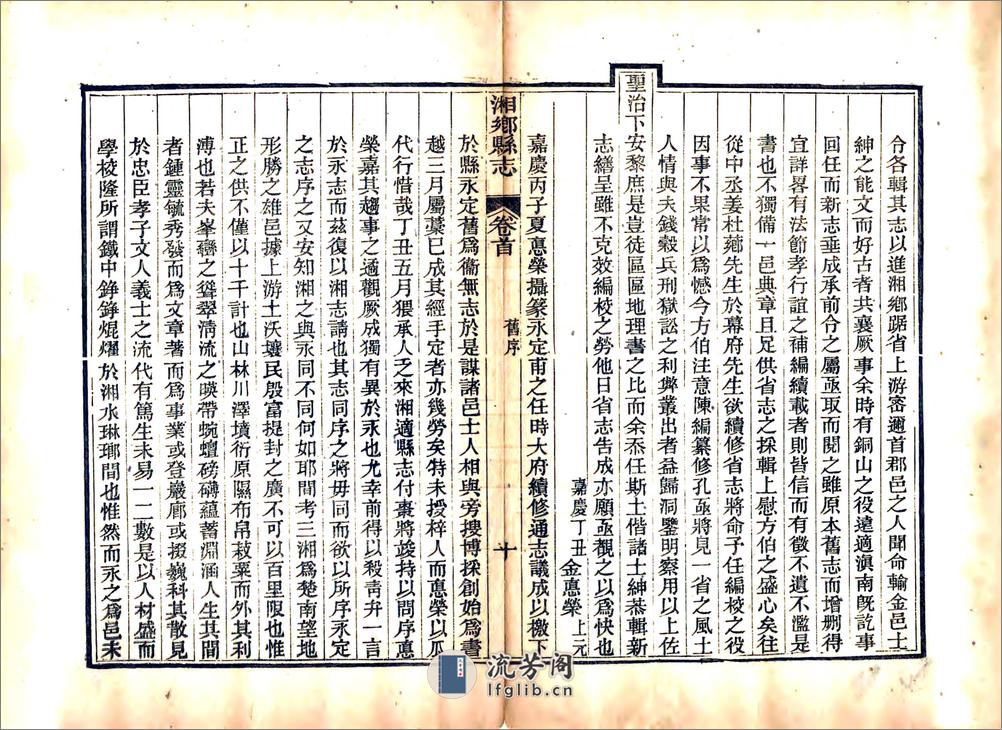 令各輯其志以進湘鄉踞省上游密邇首郡邑之人聞命輸金邑士
紳之能文而好古者共襄厥事余時有銅山之役遠適滇南旣訖事
回任而新志垂成承前令之屬亟取而閱之雖原本舊志而增刪得
宜詳畧有法節孝行誼之補編續載者則皆信而有徵不遺不濫是
書也不獨備一邑典章且足供省志之採輯上慰方伯之盛心矣往
從中丞姜杜薌先生於幕府先生欲續修省志將命予任編校之役
因事不果常以為憾今方伯注意陳編纂修孔亟將見一省之風土
人情與夫錢穀兵刑獄訟之利弊叢出者益歸洞鑒明察用以上佐
聖治下安黎庶是豈徒區區地理書之比而余忝任斯土偕諸士紳恭輯新
志繕呈雖不克效編校之勞他日省志告成亦願亟觀之以為快也
嘉慶丁丑金惪榮上元
嘉慶丙子夏惪榮攝篆永定甫之任時大府續修通志議成以檄下
湘鄉縣志 卷首 舊序 十
於縣永定舊為衞無志於是謀諸邑士人相與旁搜博採創始為書
越三月屬藁已成其經手定者亦幾勞矣特未授梓人而惪榮以瓜
代行惜哉丁丑五月猥承人之來湘適縣志付棗將竣持以問序惪
榮嘉其趨事之適觀厥成獨有異於永也尤幸前得以殺靑弁一言
於永志而茲復以湘志請也其志同序之將毋同而欲以所序永定
之志序之又安知湘之與永同不同何如耶間考三湘為楚南望地
形勝之雄邑據上游土沃壤民殷富提封之廣不可以百里限也惟
正之供不僅以十千計也山林川澤墳衍原隰布帛菽粟而外其利
溥也若夫峯巒之聳翠淸流之暎帶蜿蟺磅礴蘊蓄淵涵人生其間
者鍾靈毓秀發而為文章著而為事業或登巖廊或掇巍科其散見
於忠臣孝子文人義士之流代有篤生未易一二數是以人材盛而
學校隆所謂鐵中錚錚焜燿於湘水琳瑯間也惟然而永之為邑未
流芳阁
lfglib.cn